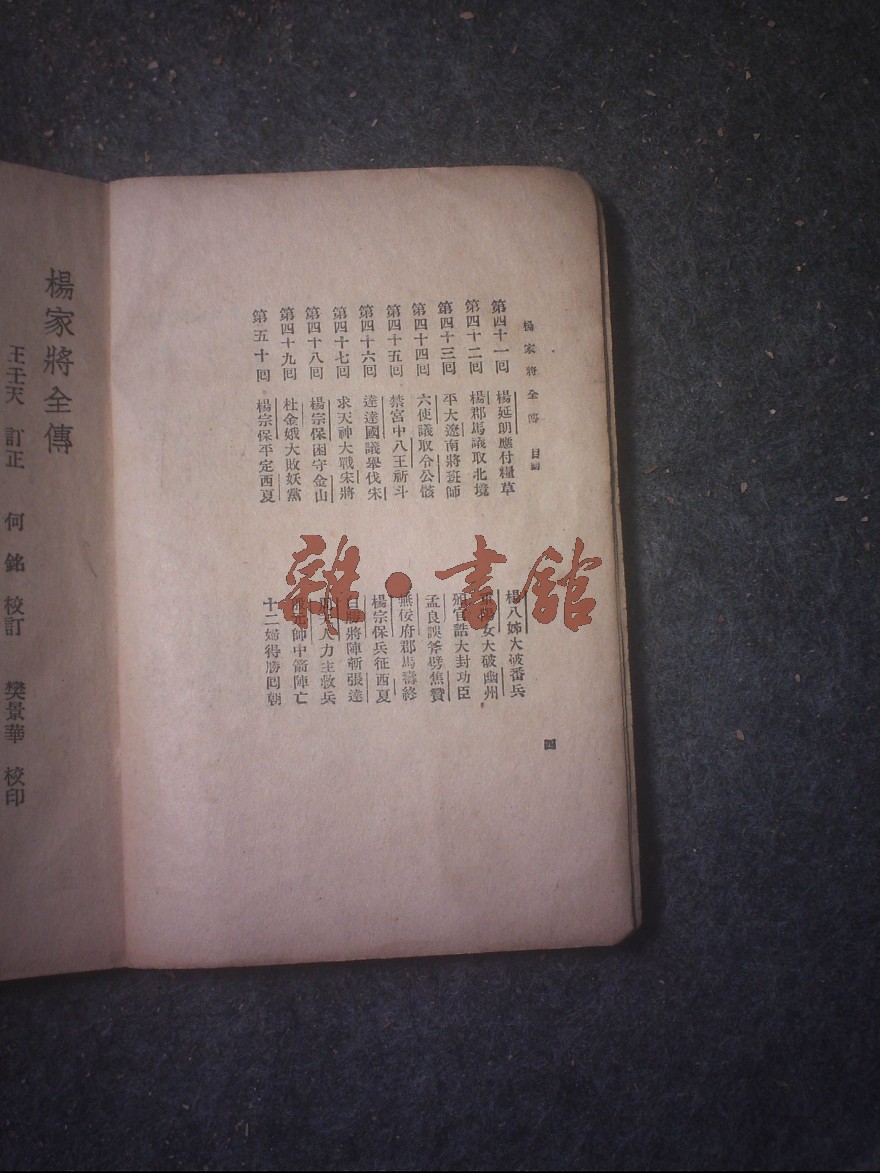 楊家將全傳 目錄
第四十一回 楊延朗應付糧草 楊八姊大破番兵
第四十二回 楊郡馬議取北境 女大破幽州
第四十三回 平大遼南將班師 官誥大封功臣
第四十四回 六使議取令公骸 孟良誤斧劈焦贊
第四十五回 禁宮中八王祈斗 無佞府郡馬壽終
第四十六回 達達國議舉伐朱 楊宗保兵征西夏
第四十七回 求天神大戰宋將 勝將陣斬張達
第四十八回 楊宗保困守金山 人力主救兵
第四十九回 杜金娥大敗妖黨 元師中箭陣亡
第五十回 楊宗保平定西夏 十二婦得勝回朝
四
楊家將全傳
王壬天 訂正 何銘 校訂 樊景華 校印
雜·書館